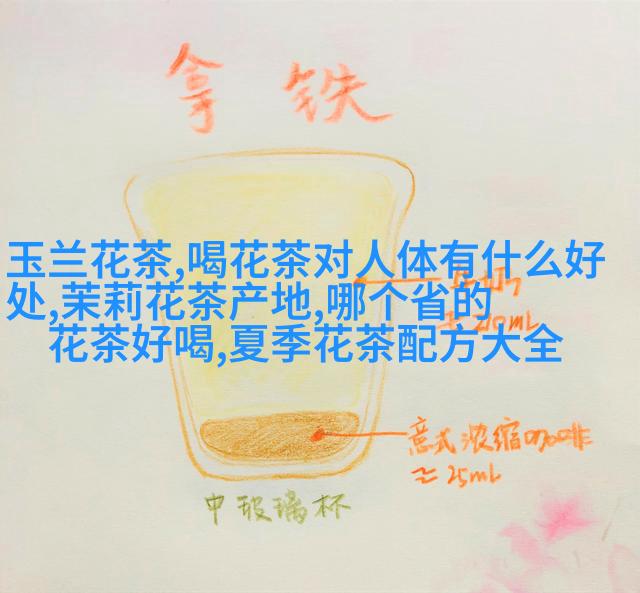 拿铁
玉兰花茶,喝花茶对人体有什么好
处,茉莉花茶产地,哪个省的
花茶好喝,夏季花茶配方大全
210mL
意式浓缩咖啡
≈25mL
中玻璃杯